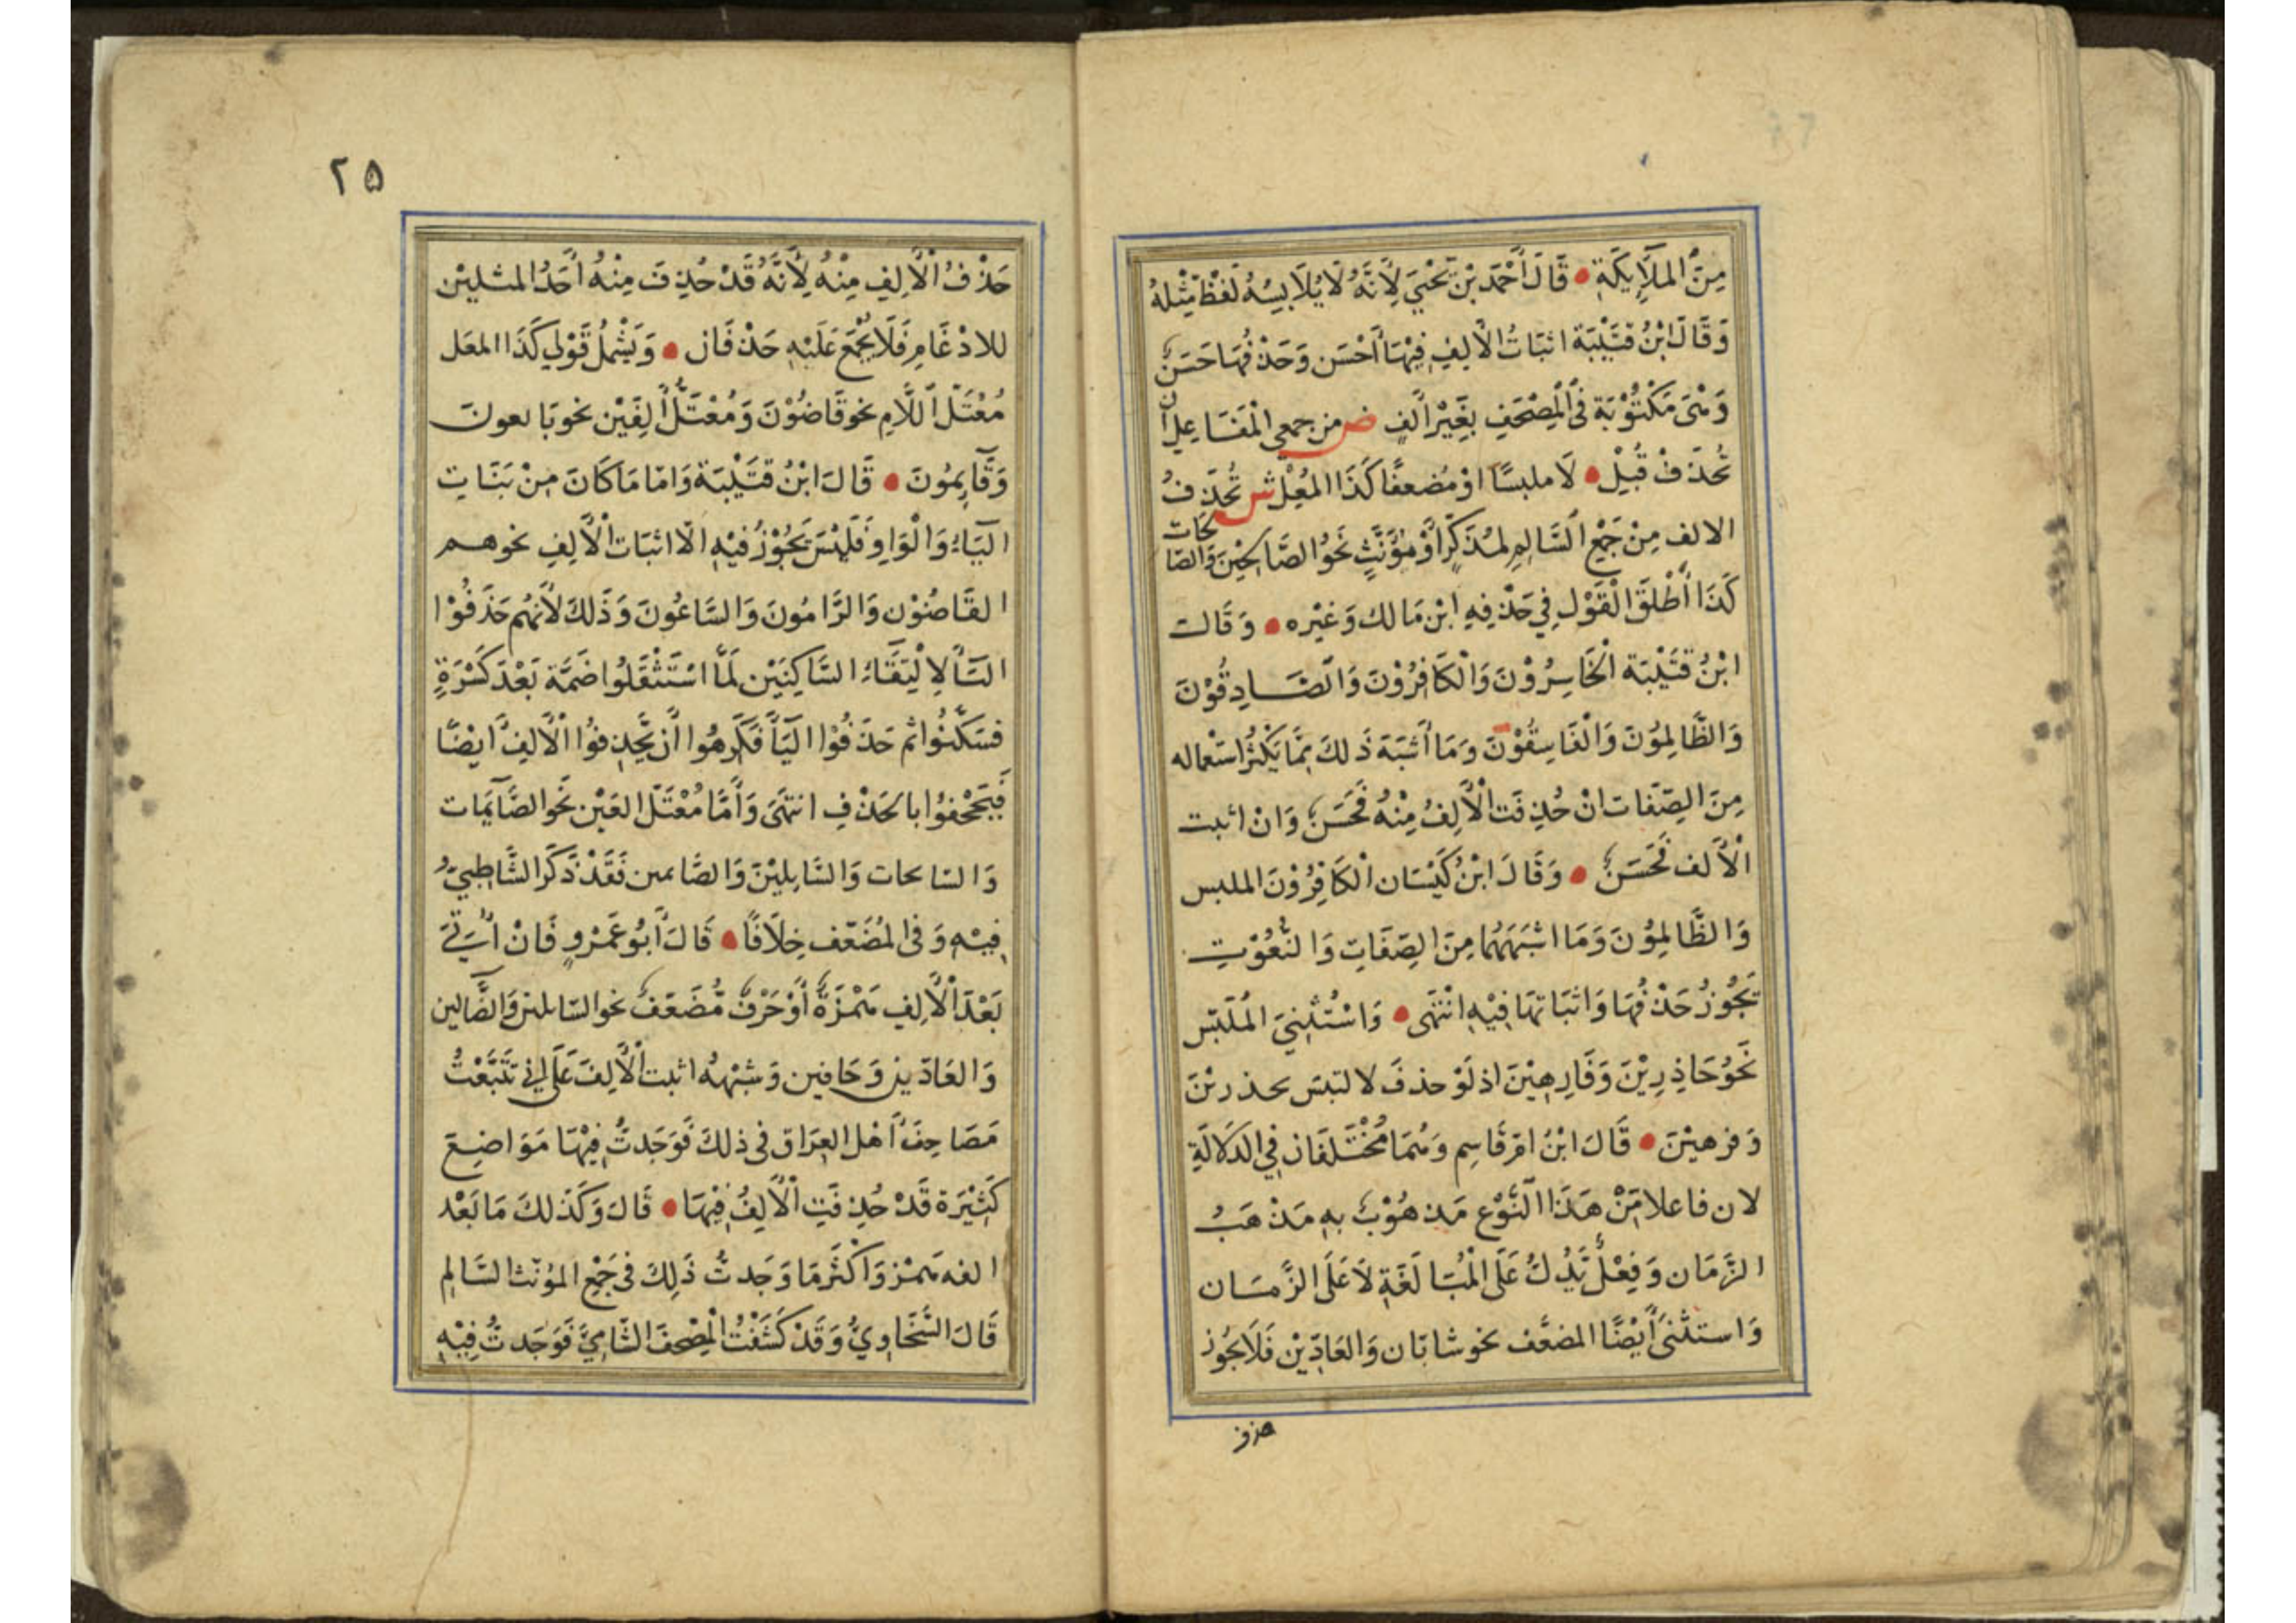 مِنَ الْمَلَآئِكَةِ • قَالَ أَحْمَدُ بْنُ يَحْيَى لِأَنَّهُ لَا يُلَابِسُهُ لَفْظٌ مِثْلُهُ
وَقَالَ ابْنُ قُتَيْبَةَ اثبَاتُ الْأَلِفِ فِيْهَا أَحْسَن وَحَذْفُهَا حَسَنٌ
وَهْىَ مَكْتُوْبَة فِى الْمُصْحَفِ بِغَيْرِ أَلِفٍ ص من جمعى الْمَفَاعِلِ انْ
تُحْذَفْ قُبِلْ • لَا ملبسًا اوْ مُضعفًا كَذَا المُعَلْ ش تُحْذَفُ
الالف مِنْ جَمْعِ السَّالِمِ لِمُذَكَّرٍ أَوْ مُؤَنَّثٍ نَحْوُ الصَّالِحِيْنَ وَالصَّالِحَاتِ
كَذَا أَطْلَقَ الْقَوْل فِي حَذْفِهِ ابْن مَالك وَغَيْره • وَقَالَ
ابْنُ قُتَيْبَة الْخَاسِرُوْنَ وَالْكَافِرُوْنَ وَالصَّادِقُوْنَ
وَالظَّالِمُوْنَ وَالْفَاسِقُوْنَ وَمَا أَشْبَهَ ذَلِكَ مِمَّا يَكْثُرُ اسْتعماله
مِنَ الصِّفَات انْ حُذِفَت الْأَلِفُ مِنْهُ فَحَسَنٌ وَانْ اثبت
الْأَلف فَحَسَنٌ • وَقَالَ ابْنُ كَيْسَان الْكَافِرُوْنَ الملبس
وَالظَّالِمُوْنَ وَمَا اشْبَهَهُمَا مِنَ الصِّفَاتِ وَالنُّعُوْتِ
يَجُوْزُ حَذْفُهَا وَاثبَاتهَا فِيْهِ انْتَهَى • وَاسْتُثْنِيَ الْمُلْبَس
نَحْوُ حَاذِرِيْنَ وَفَارِهِيْنَ اذ لَوْ حذفَ لالتبَسَ بحذرِيْنَ
وَفرهيْنَ • قَالَ ابْنُ امّ قَاسِم وَهُمَا مُخْتَلفَان فِي الدَّلَالَةِ
لان فاعلا مِنْ هَذَا النَّوْع مَذهُوْبٌ بِهِ مَذْهَبُ
الزَّمَان وَفِعْلٌ يَدُلُّ عَلَى الْمُبَالَغَةِ لَا عَلَى الزَّمَان
وَاستثنى أَيْضًا المضعَّف نحو شابّان وَالعَادِّيْن فَلَا يجُوز
حذف
٢٥
حَذْفُ الْأَلِفِ مِنْهُ لِأَنَّهُ قَدْ حُذِفَ مِنْهُ أَحَدُ المثليْن
للادْغَامِ فَلَا يُجْمَع عَلَيْهِ حَذْفَان • وَيَشْمَلُ قَوْلِي كَذَا المعَل
مُعْتَلّ اللَّامِ نحو قَاضُوْنَ وَمُعْتَلُّ الْعَيْن نحو بَايعونَ
وَقَآئِمُونَ • قَالَ ابْنُ قُتَيْبَة وَامّا مَا كَانَ مِنْ بَنَاتِ
اليَآءِ وَالْوَاوِ فَلَيْسَ يَجُوْزُ فِيْهِ الّا اثبَات الْأَلِفِ نحو هم
القَاضُوْن وَالرَّامُونَ وَالسَّاعُونَ وَذَلكَ لأَنَهُم حَذَفُوْا
اليَآءَ لِالْتِقَآءِ السَّاكِنَيْن لَمَّا اسْتَثْقَلُوا ضَمَّة بَعْدَ كَسْرَةٍ
فسَكَّنُوا ثم حَذَفُوْا اليَآءَ فَكَرِهُوا أَن يَحْذِفُوا الْأَلِفَ أَيْضًا
فَيَجْحفُوْا بالحَذْفِ انتهَى وَأَمَّا مُعْتَلّ العَيْن نَحْو الصَّآئِمَات
وَالسّائحات وَالسَّائِليْنَ وَالصَّائمين فَقَدْ ذَكَرَ الشَّاطِبيُّ
فِيْهِ وَفِى الْمُضَعَّف خِلَافًا • قَالَ أَبُو عَمْرٍو فَانْ أَتى
بَعْدَ الْأَلِفِ هَمْزَةٌ أَوْ حَرْفٌ مُضَعَّفٌ نحو السّائلين وَالضَّالين
وَالعَادّين وَحَافين وَشبْههُ اثبت الْأَلِفَ عَلَى انى تَتَبَّعْتُ
مَصَاحِفَ أَهْل العِرَاق فى ذلكَ فَوَجَدتُّ فِيْهَا مَوَاضِعَ
كَثِيْرَة قَدْ حُذِفَتِ الْأَلِفُ فِيْهَا • قَالَ وَكَذَلكَ مَا بَعْد
الفه همْز وَاكْثَر مَا وَجَدتُّ ذَلِكَ فى جَمْعِ المؤنّث السَّالِم
قَالَ السَّخَاوِيُّ وَقَدْ كَشَفْتُ الْمُصْحَفَ الشَّامِيَّ فَوَجَدتُّ فِيْهِ